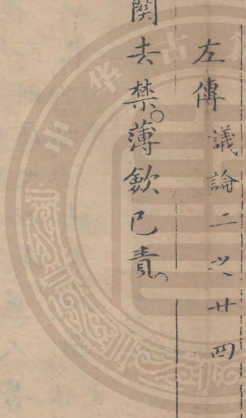 左傳議論二之廿四
關去禁薄歛已責